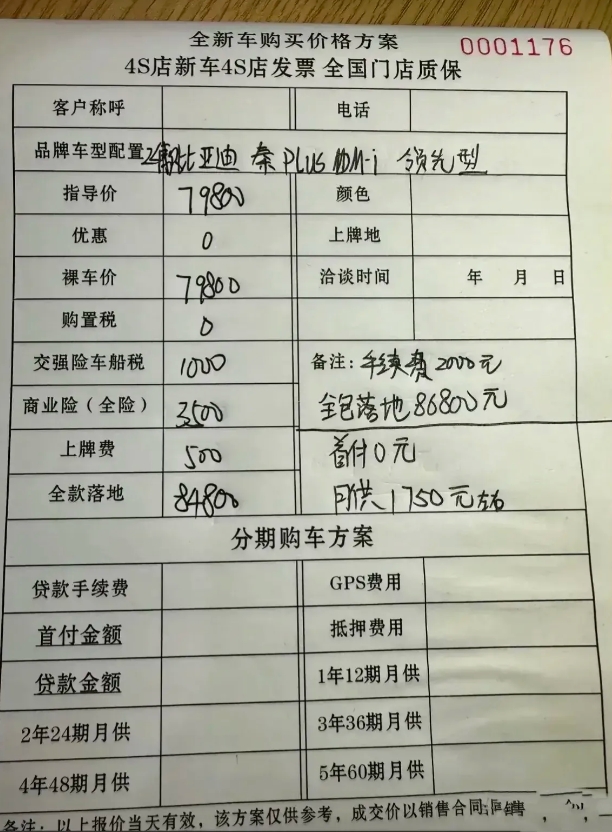 全新车购买价格方案 0001176
4S店新车4S店发票 全国门店质保
客户称呼 电话
品牌车型配置 比亚迪 秦 PLUS DM-i 领先型
指导价 79800 颜色
优惠 0 上牌地
裸车价 79800 洽谈时间 年 月 日
购置税 0
交强险车船税 1000 备注: 手续费 2000元
商业险（全险） 3500 全包落地 86800元
上牌费 500 首付0元
全款落地 84800 月供1750元左右
分期购车方案
贷款手续费 GPS费用
首付金额 抵押费用
贷款金额 1年12期月供
2年24期月供 3年36期月供
4年48期月供 5年60期月供
备注: 以上报价当天有效，该方案仅供参考，成交价以销售合同